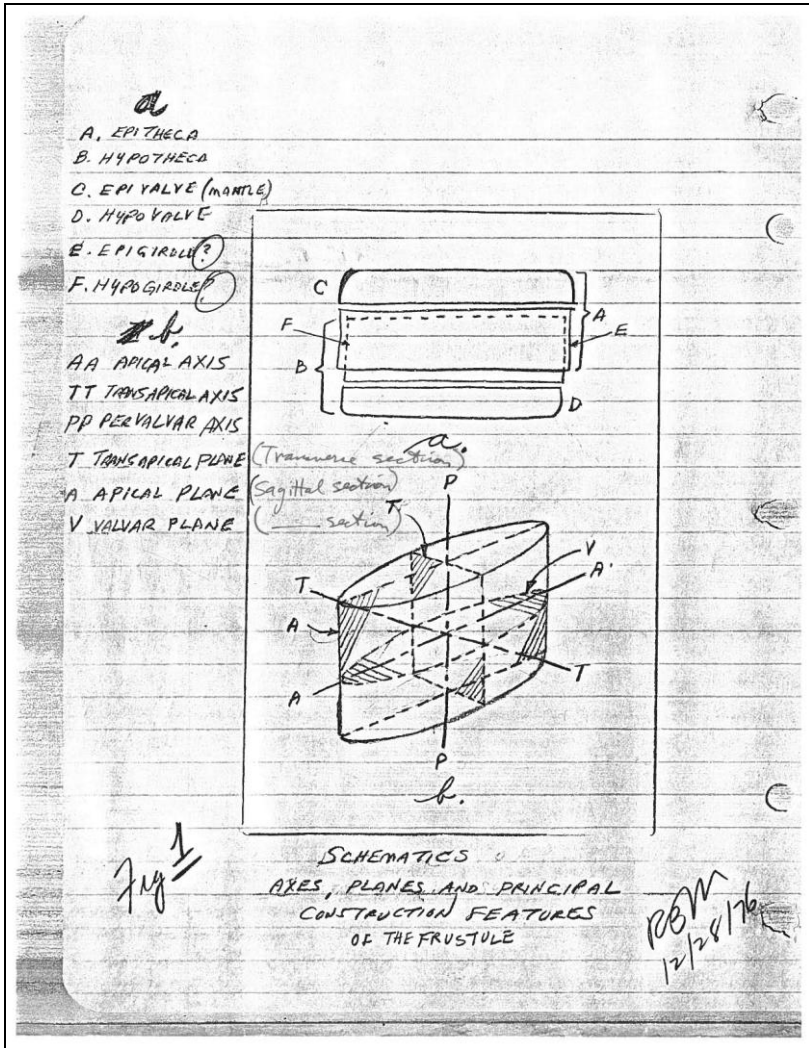 a
A. EPITHECA
B. HYPOTHECA
C. EPIVALVE (MANTLE)
D. HYPOVALVE
E. EPIGIRDLE ?
F. HYPOGIRDLE ?
b.
AA APICAL AXIS
TT TRANSAPICAL AXIS
PP PERVALVAR AXIS
T TRANSAPICAL PLANE (Transverse section)
A APICAL PLANE (Sagittal section)
V VALVAR PLANE (___ section)
C
A
F
E
B
D
a.
P
T
V
A'
T
A
T
A
P
b.
Fig 1
SCHEMATICS
AXES, PLANES AND PRINCIPAL
CONSTRUCTION FEATURES
OF THE FRUSTULE
RBM
12/28/76